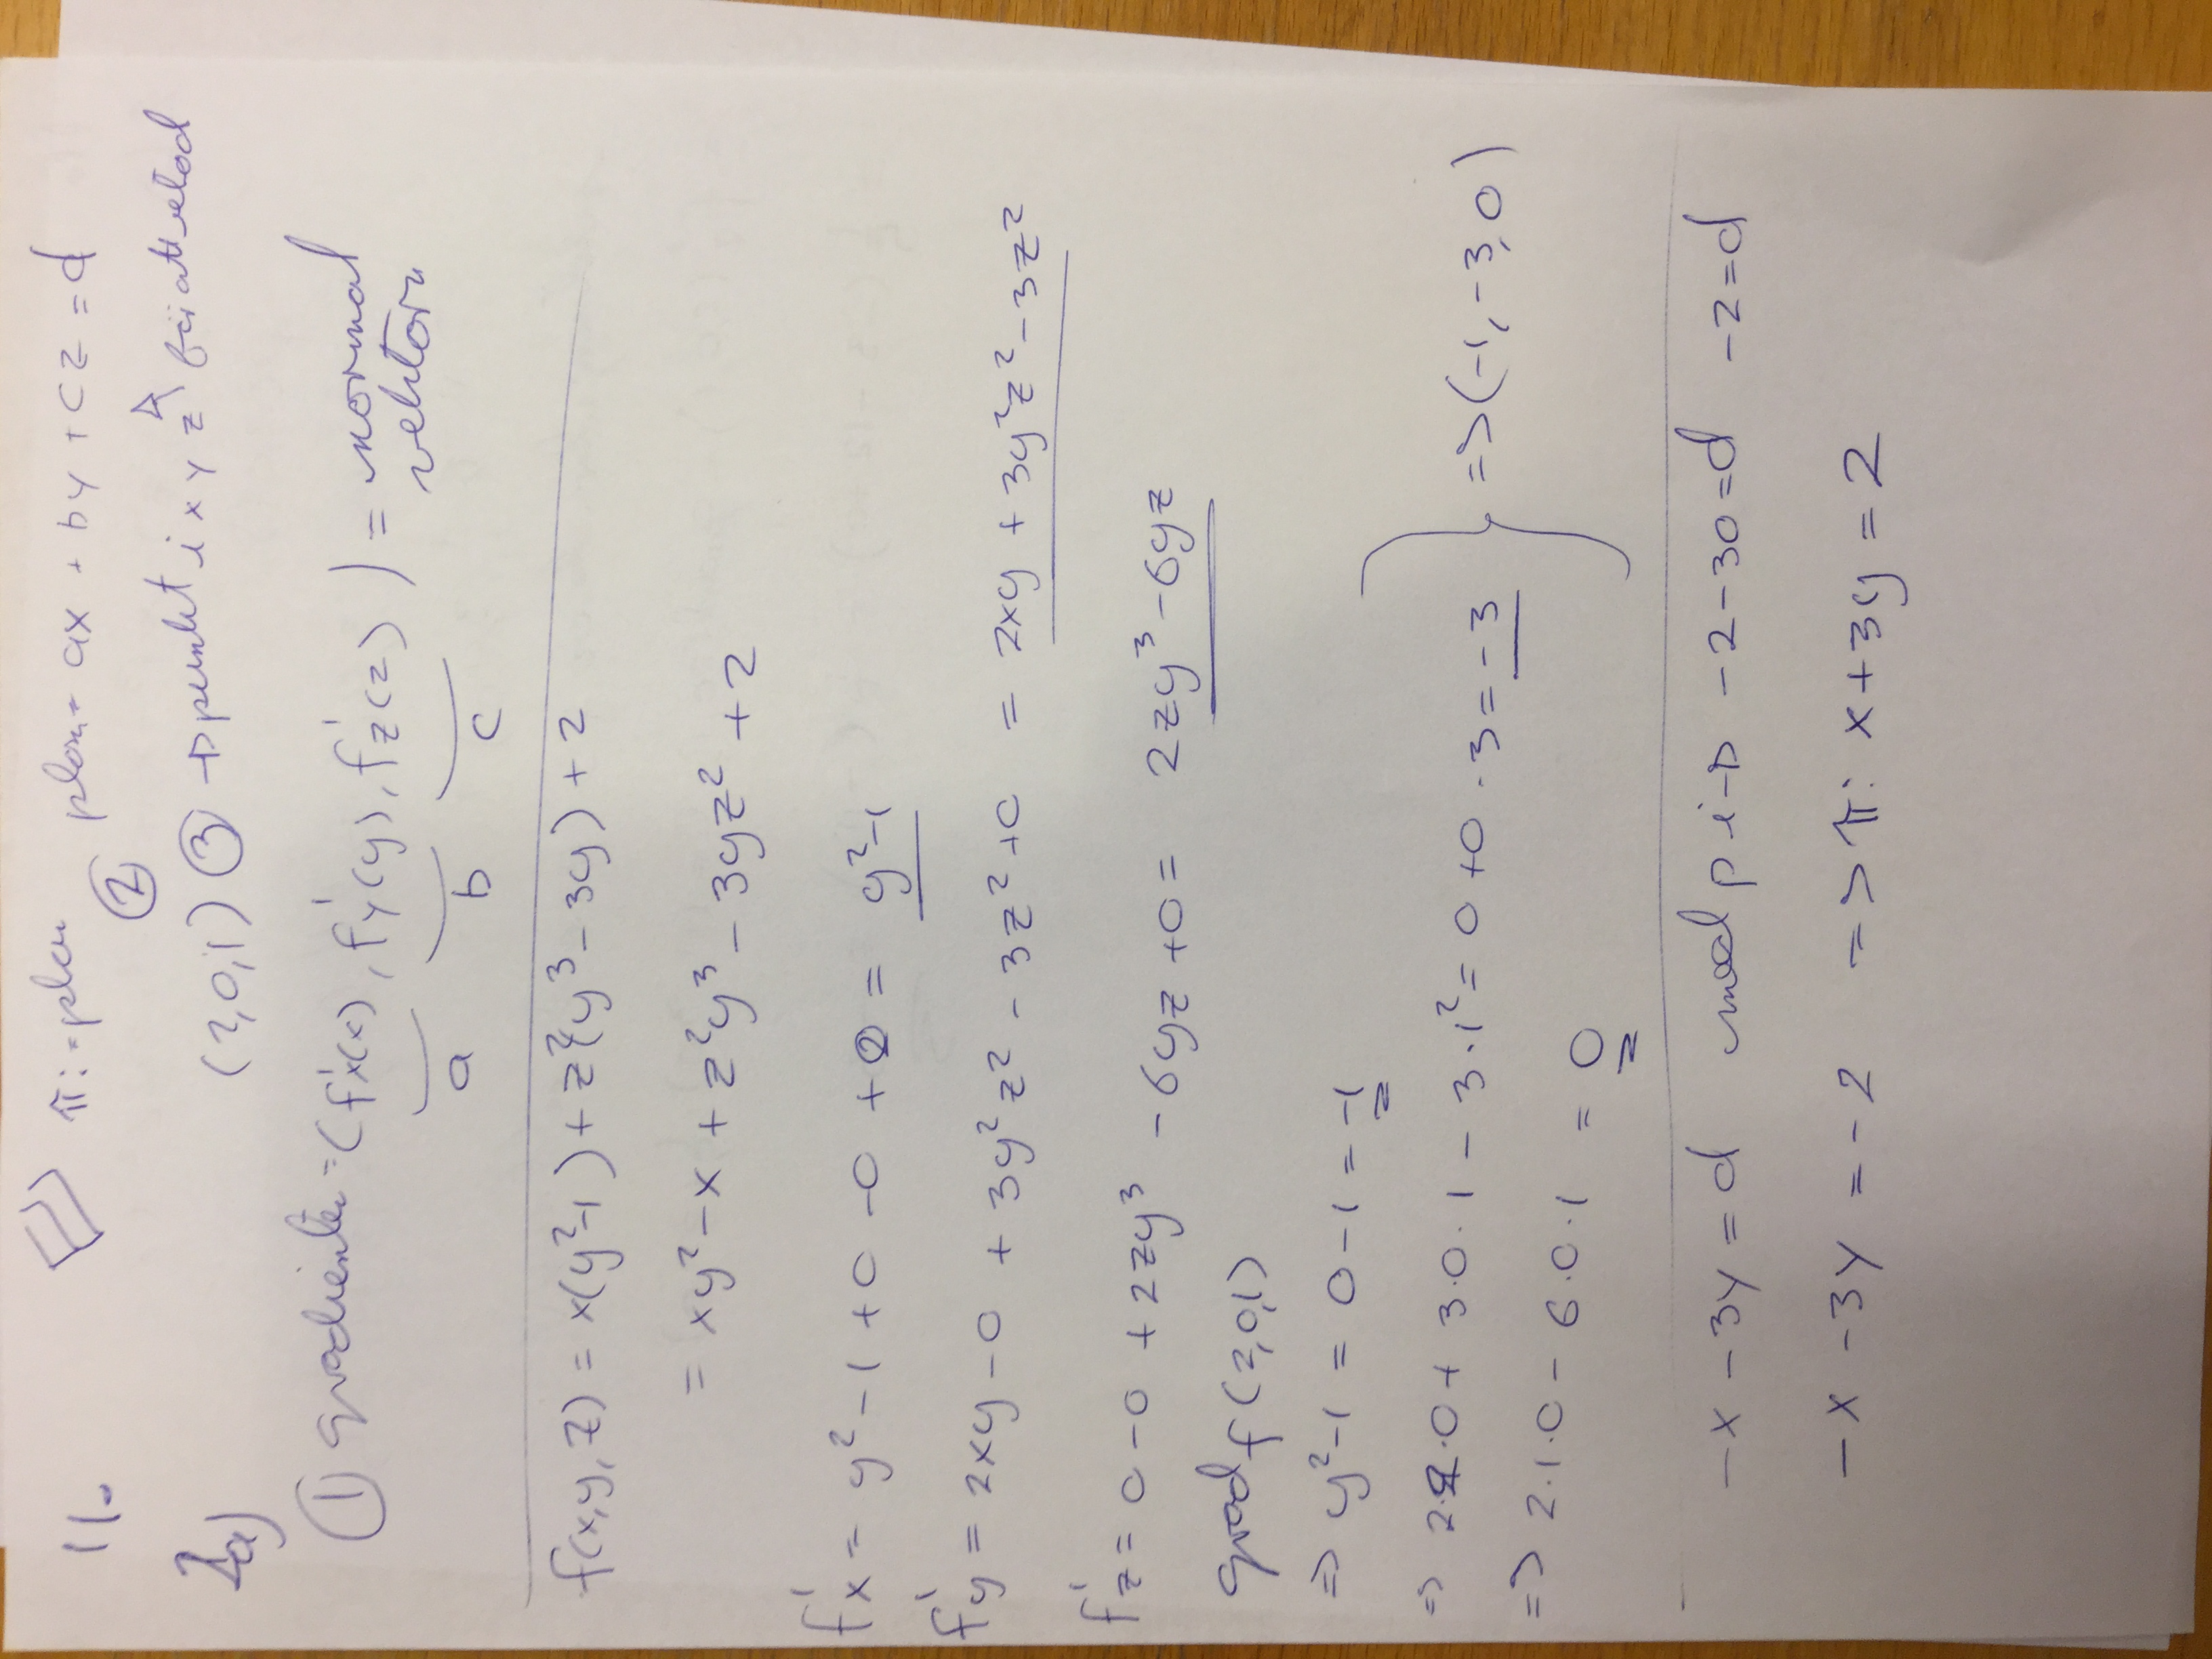 11. π: = plan plan = ax + by + cz = d
②
2a) (2,0,1) ③ → punkt i x y z för att veta d
① gradienten = (f'x(x), f'y(y), f'z(z)) = normal vektorn
a b c
f(x,y,z) = x(y²-1) + z²(y³-3y) + 2
= xy² - x + z²y³ - 3yz² + 2
f'x = y² - 1 + 0 - 0 + 0 = y²-1
f'y = 2xy - 0 + 3y²z² - 3z² + 0 = 2xy + 3y²z² - 3z²
f'z = 0 - 0 + 2zy³ - 6yz + 0 = 2zy³ - 6yz
grad f(2,0,1)
=> y²-1 = 0-1 = -1
=> 2·2·0 + 3·0·1 - 3·1² = 0 + 0 - 3 = -3 => (-1, -3, 0)
=> 2·1·0 - 6·0·1 = 0
-x - 3y = d med p i → -2-30 = d -2 = d
-x - 3y = -2 => π: x + 3y = 2